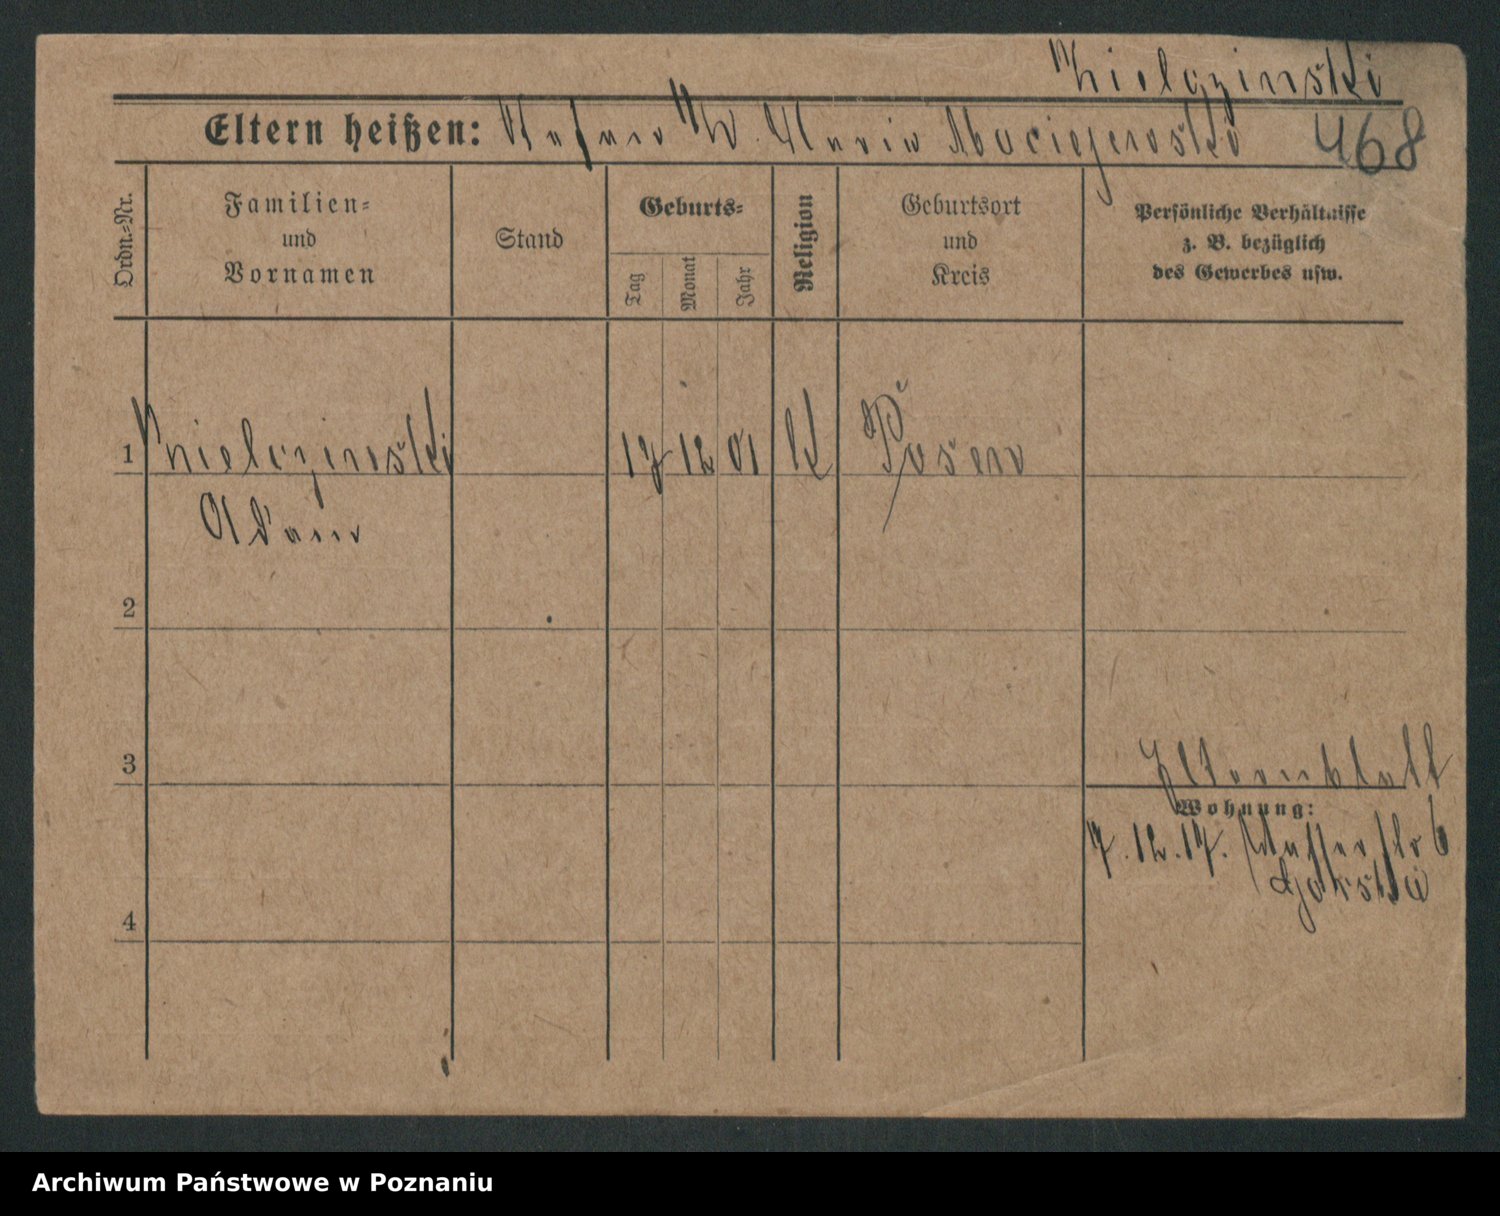 Mielczinski
Eltern heißen: Stefan u. Maria Maciejewski 468
Ordn.=Nr.
Familien=
und
Vornamen
Stand
Geburts=
Tag
Monat
Jahr
Religion
Geburtsort
und
Kreis
Persönliche Verhältnisse
z. B. bezüglich
des Gewerbes usw.
1 Mielczinski 17 12 01 K Posen
Adam
2
3
Elternblatt
Wohnung:
7.12.17. 6
Gorski
4
Archiwum Państwowe w Poznaniu